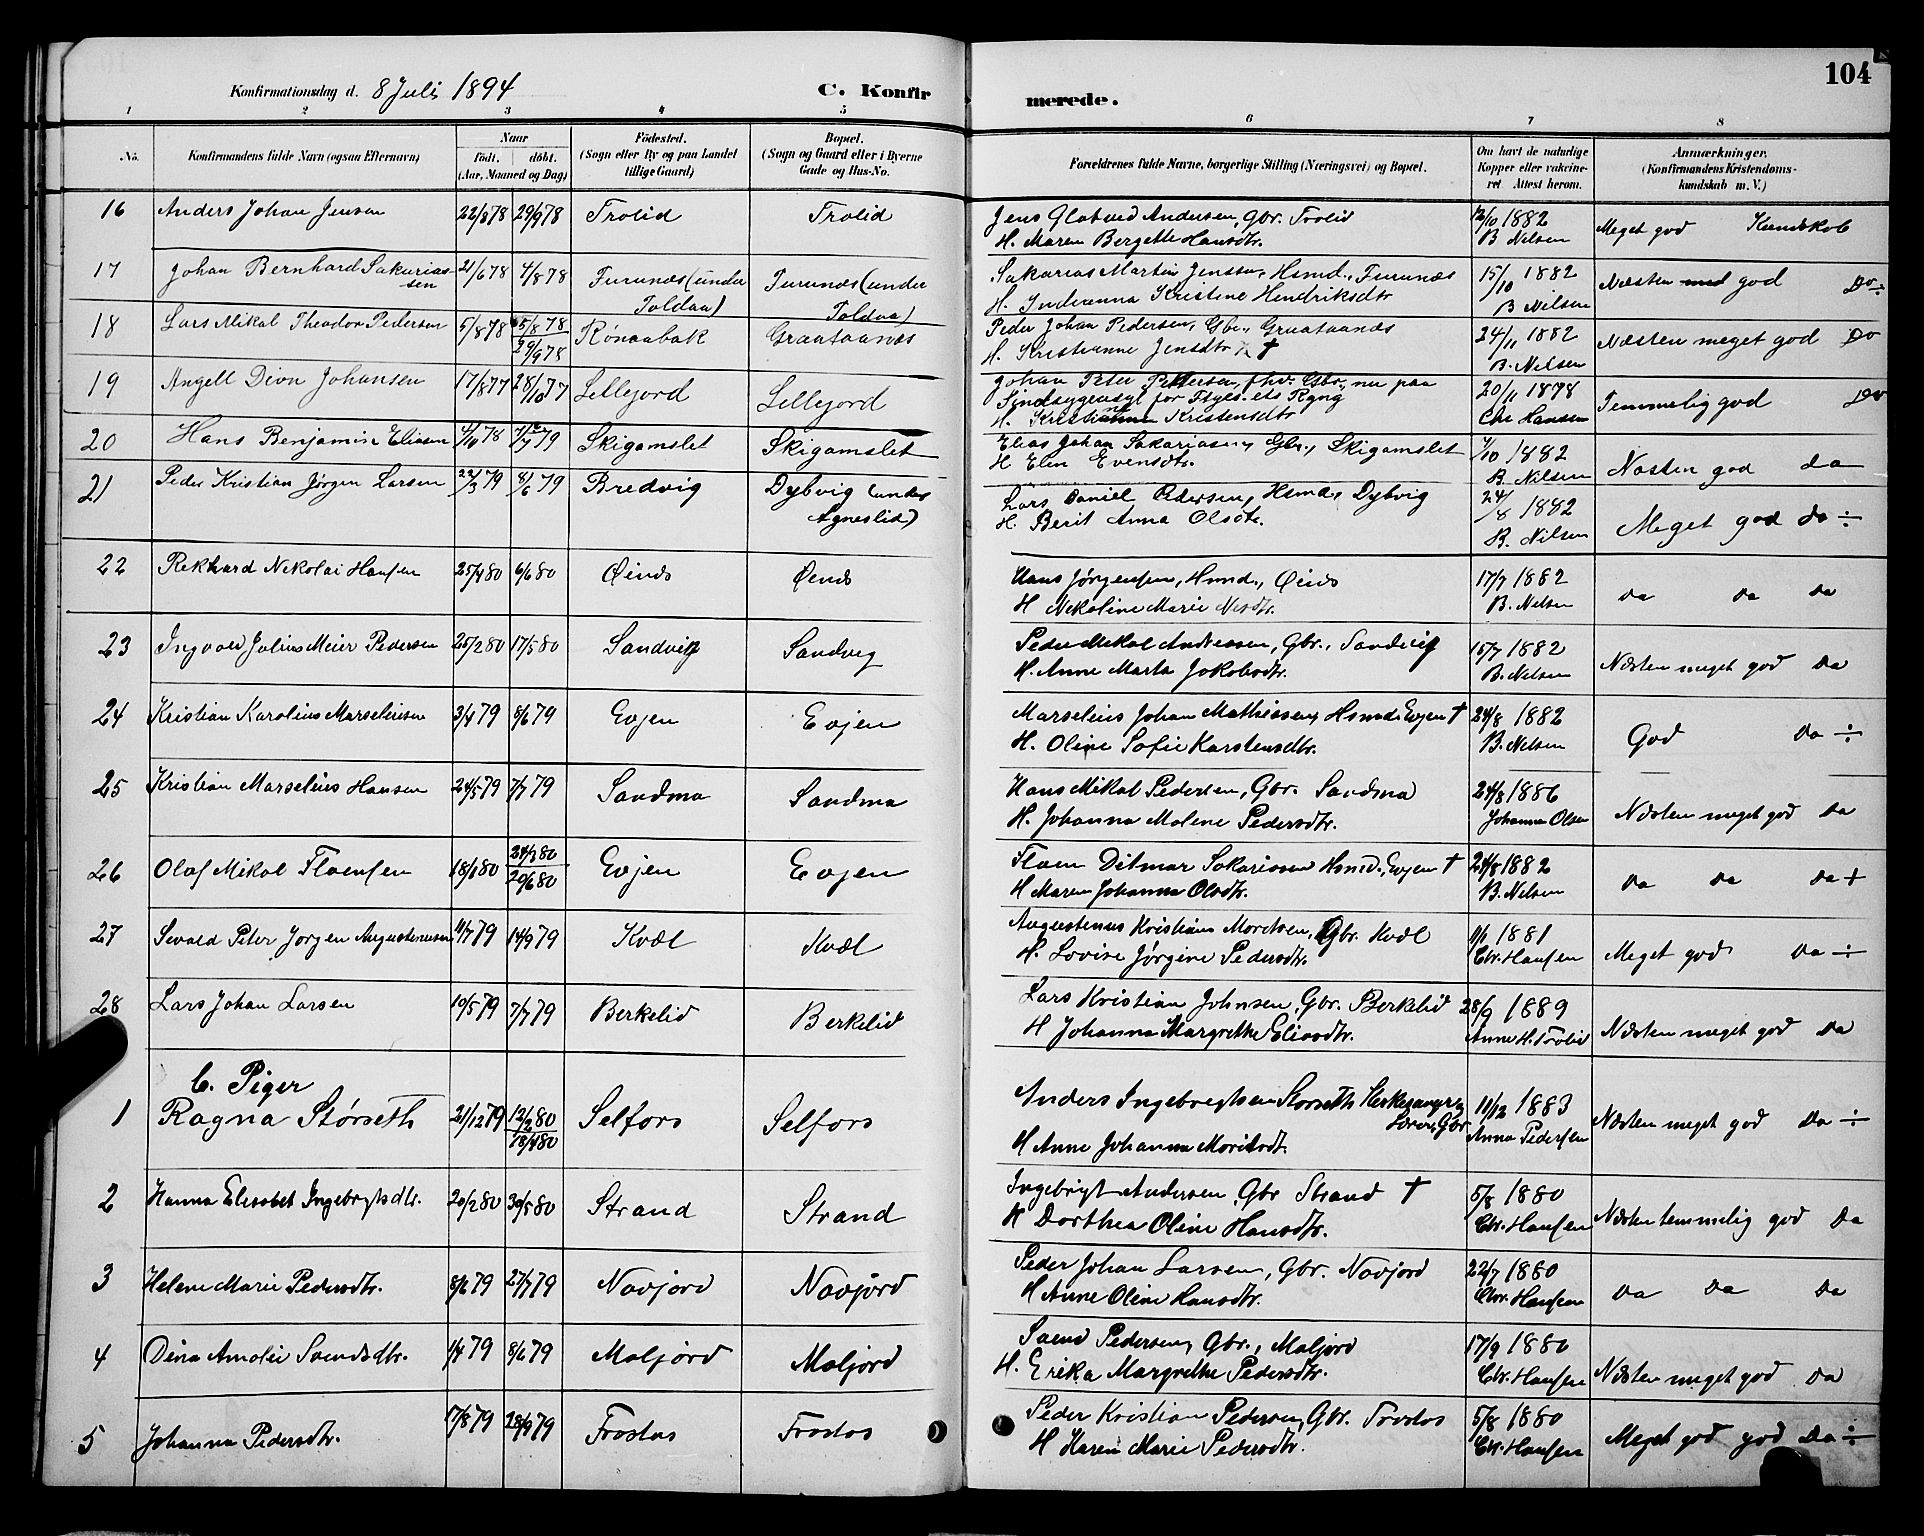 104
Konfirmationsdag d. 8 Juli 1894 C. Konfirmerede.
1 2 3 4 5 6 7 8
No. Konfirmandens fulde Navn (ogsaa Efternavn) Naar født. døbt. (Aar, Maaned og Dag) Fødested. (Sogn eller By og paa Landet tillige Gaard) Bopæl. (Sogn og Gaard eller i Byerne Gade og Hus-No. Forældrenes fulde Navne, borgerlige Stilling (Næringsvei) og Bopæl. Om havt de naturlige Kopper eller vakcineret Attest herom. Anmærkninger. (Konfirmandens Kristendomskundskab m. V.)
16 Anders Johan Jensen 22/8 78 29/9 78 Trolid Trolid Jens Glatved Andersen, Gbr. Trolid 12/10 1882 Meget god Kundskab
H. Maren Bergette Hansdtr. B Nilsen
17 Johan Bernhard Sakarias- 21/6 78 4/8 78 Furunæs (under Furunæs (under Sakarias Martin Jensen, Hsmd., Furunæs 15/10 1882 Næsten god Do ÷
sen Toldaa) Toldaa) H. Inderanna Kristine Hendriksdtr B Nilsen
18 Lars Mikal Theodor Pedersen 5/8 78 5/8 78 Rønaabak Graataanæs Peder Johan Pedersen, Gbr., Graataanæs 24/11 1882 Næsten meget god Do
29/9 78 H. Kristianne Jensdtr † B. Nilsen
19 Angell Dion Johansen 17/8 77 28/10 77 Lillejord Lillejord Johan Peter Pettersen, fhv. Gbr., nu paa 20/11 1878 Temmelig god Do
Sindsygeasyl for Rgng Chr Hanssen
H. Kristensdtr
20 Hans Benjamin Eliasen 4/10 78 79 Skigamslet Skigamslet Elias Johan Sakariasen, Gbr., Skigamslet 7/10 1882 Næsten god da
H Elen Evensdtr. B Nilsen
21 Peder Kristian Jørgen Larsen 22/3 79 8/6 79 Bredvig Dybvig (under Lars Daniel Pedersen, Hsmd., Dybvig 24/8 1882 Meget god do ÷
Agneslid) H. Berit Anna Olsdtr. B. Nilsen
22 Rikhard Nikolai Hansen 25/4 80 6/6 80 Øinds Øinds Hans Jørgensen, Hsmd., Øinds 17/7 1882 da da da
H Nikoline Marie Nisdtr. B. Nilsen
23 Ingvald Julius Meier Pedersen 25/2 80 17/5 80 Sandvig Sandvig Peder Mikal Andreasen, Gbr., Sandvig 15/7 1882 Næsten meget god Da
H. Anne Marta Jakobsdtr. B. Nilsen
24 Kristian Karolius Marseliusen 3/4 79 8/6 79 Evjen Evjen Marselius Johan Mathiasen, Hsmd. Evjen † 24/8 1882 God Da ÷
H. Oline Sofie Karstensdtr. B. Nilsen
25 Kristian Marselius Hansen 24/5 79 7/7 79 Sandmo Sandmo Hans Mikal Pedersen, Gbr. Sandmo 24/8 1886 Næsten meget god da
H. Johanna Malene Pedersdtr. Johanna Olsen
26 Olaf Mikal Floensen 18/1 80 80 Evjen Evjen Floen Ditmar Sakariasen Hsmd., Evjen † 24/8 1882 da da da +
20/6 80 H Maren Johanna Olsdtr. B. Nilsen
27 Sevald Peter Jørgen Augustinusen 11/7 79 14/9 79 Kvæl Kvæl Augustinus Kristian Mortsen, Gbr. Kvæl 11/1 1881 Meget god Da ÷
H. Lovise Jørgine Pedersdtr. Chr. Hansen
28 Lars Johan Larsen 10/5 79 7/7 79 Berkelid Berkelid Lars Kristian Johnsen, Gbr. Berkelid 28/9 1889 Næsten meget god Da
H Johanna Margrethe Eliasdtr. Anne H. Trolid
b. Piger
1 Ragna Størseth 21/12 79 12/2 80 Selfors Selfors Anders Ingebregtsen Storseth Kirkesanger og 11/12 1883 Næsten meget god Da ÷
18/4 80 Gbr Anna Pedersen
H Anne Johanna Moritsdtr.
2 Hanna Elisabet Ingebrigtsdtr. 20/2 80 30/5 80 Strand Strand Ingebrigt Andersen, Gbr Strand † 5/8 1880 Næsten temmelig god Da
H Dorthea Oline Hansdtr. Chr. Hansen
3 Helene Marie Pedersdtr. 8/6 79 27/7 79 Navjord Navjord Peder Johan Larsen, Gbr. Navjord 22/7 1880 Da Da Da
H Anne Oline Hansdtr. Chr. Hansen
4 Dina Amalie Svendsdtr. 1/4 79 8/6 79 Maljord Maljord Svend Pedersen, Gbr., Maljord 17/9 1880 Næsten meget god Da
H. Erika Margrethe Pedersdtr. Chr. Hansen
5 Johanna Pedersdtr. 17/8 79 28/9 79 Frostos Frostos Peder Kristian Pedersen, Gbr. Frostos 5/8 1880 Meget god god Da ÷
H Karen Marie Pedersdtr. Chr. Hansen